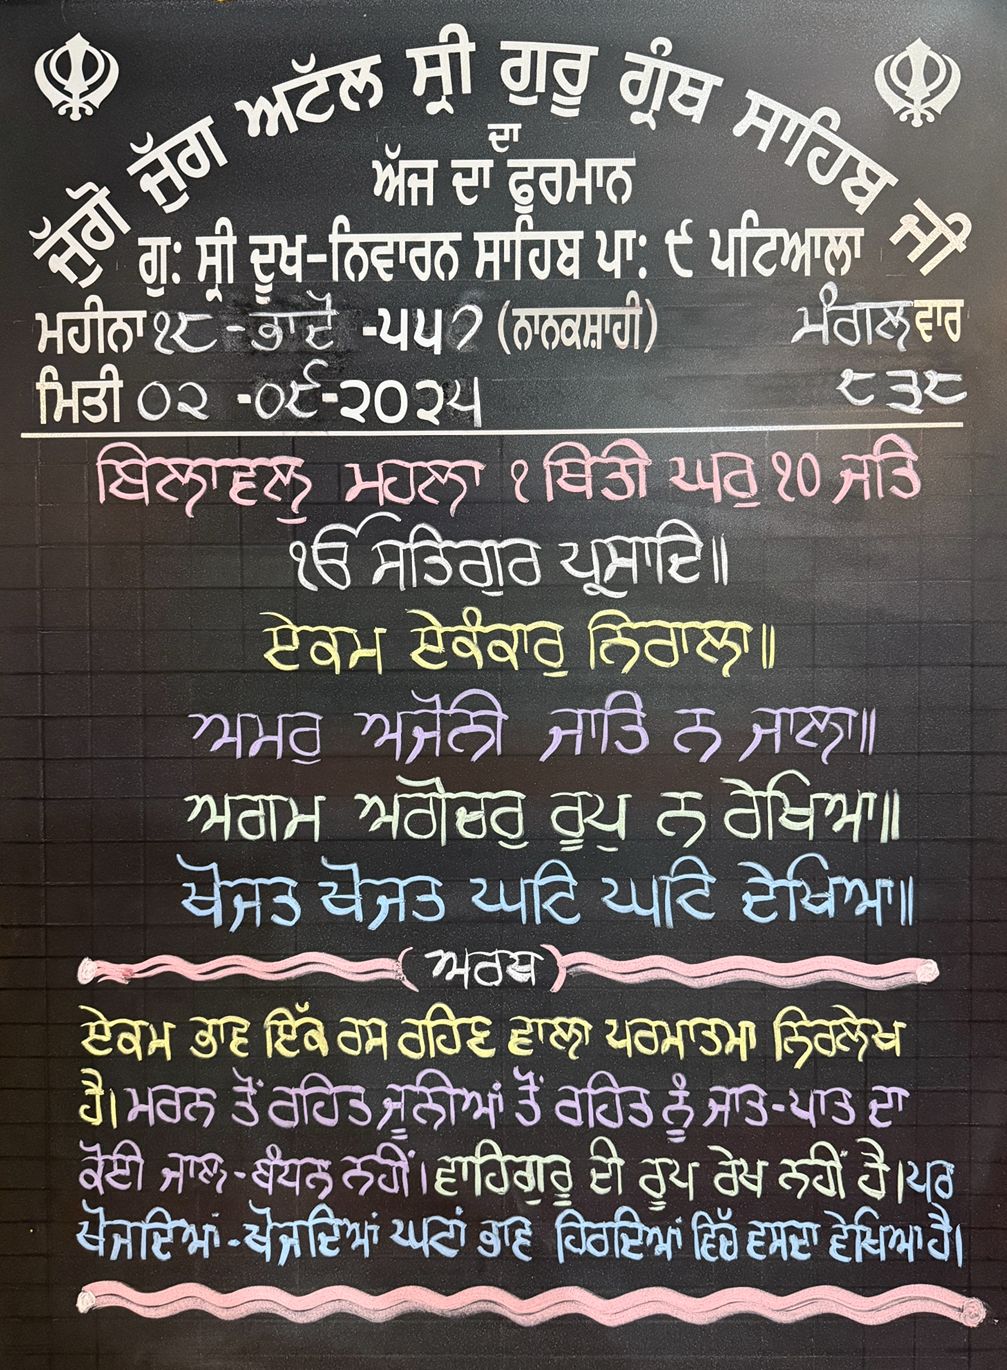 ਜੁੱਗੋ ਜੁੱਗ ਅਟੱਲ ਸ੍ਰੀ ਗੁਰੂ ਗ੍ਰੰਥ ਸਾਹਿਬ ਜੀ
ਦਾ
ਅੱਜ ਦਾ ਫੁਰਮਾਨ
ਗੁ: ਸ੍ਰੀ ਦੂਖ-ਨਿਵਾਰਨ ਸਾਹਿਬ ਪਾ: ੯ ਪਟਿਆਲਾ
ਮਹੀਨਾ ੧੮ -ਭਾਦੋਂ -੫੫੭ (ਨਾਨਕਸ਼ਾਹੀ) ਮੰਗਲਵਾਰ
ਮਿਤੀ ੦੨ -੦੯-੨੦੨੫ ੮੩੮
ਬਿਲਾਵਲੁ ਮਹਲਾ ੧ ਥਿਤੀ ਘਰੁ ੧੦ ਜਤਿ
ੴ ਸਤਿਗੁਰ ਪ੍ਰਸਾਦਿ॥
ਏਕਮ ਏਕੰਕਾਰੁ ਨਿਰਾਲਾ॥
ਅਮਰੁ ਅਜੋਨੀ ਜਾਤਿ ਨ ਜਾਲਾ॥
ਅਗਮ ਅਗੋਚਰੁ ਰੂਪੁ ਨ ਰੇਖਿਆ॥
ਖੋਜਤ ਖੋਜਤ ਘਟਿ ਘਟਿ ਦੇਖਿਆ॥
(ਅਰਥ)
ਏਕਮ ਭਾਵ ਇੱਕ ਰਸ ਰਹਿਣ ਵਾਲਾ ਪਰਮਾਤਮਾ ਨਿਰਲੇਖ
ਹੈ। ਮਰਨ ਤੋਂ ਰਹਿਤ ਜੂਨੀਆਂ ਤੋਂ ਰਹਿਤ ਨੂੰ ਜਾਤ-ਪਾਤ ਦਾ
ਕੋਈ ਜਾਲ-ਬੰਧਨ ਨਹੀਂ। ਵਾਹਿਗੁਰੂ ਦੀ ਰੂਪ ਰੇਖ ਨਹੀਂ ਹੈ। ਪਰ
ਖੋਜਦਿਆਂ-ਖੋਜਦਿਆਂ ਘਟਾਂ ਭਾਵ ਹਿਰਦਿਆਂ ਵਿੱਚ ਵਸਦਾ ਵੇਖਿਆ ਹੈ।